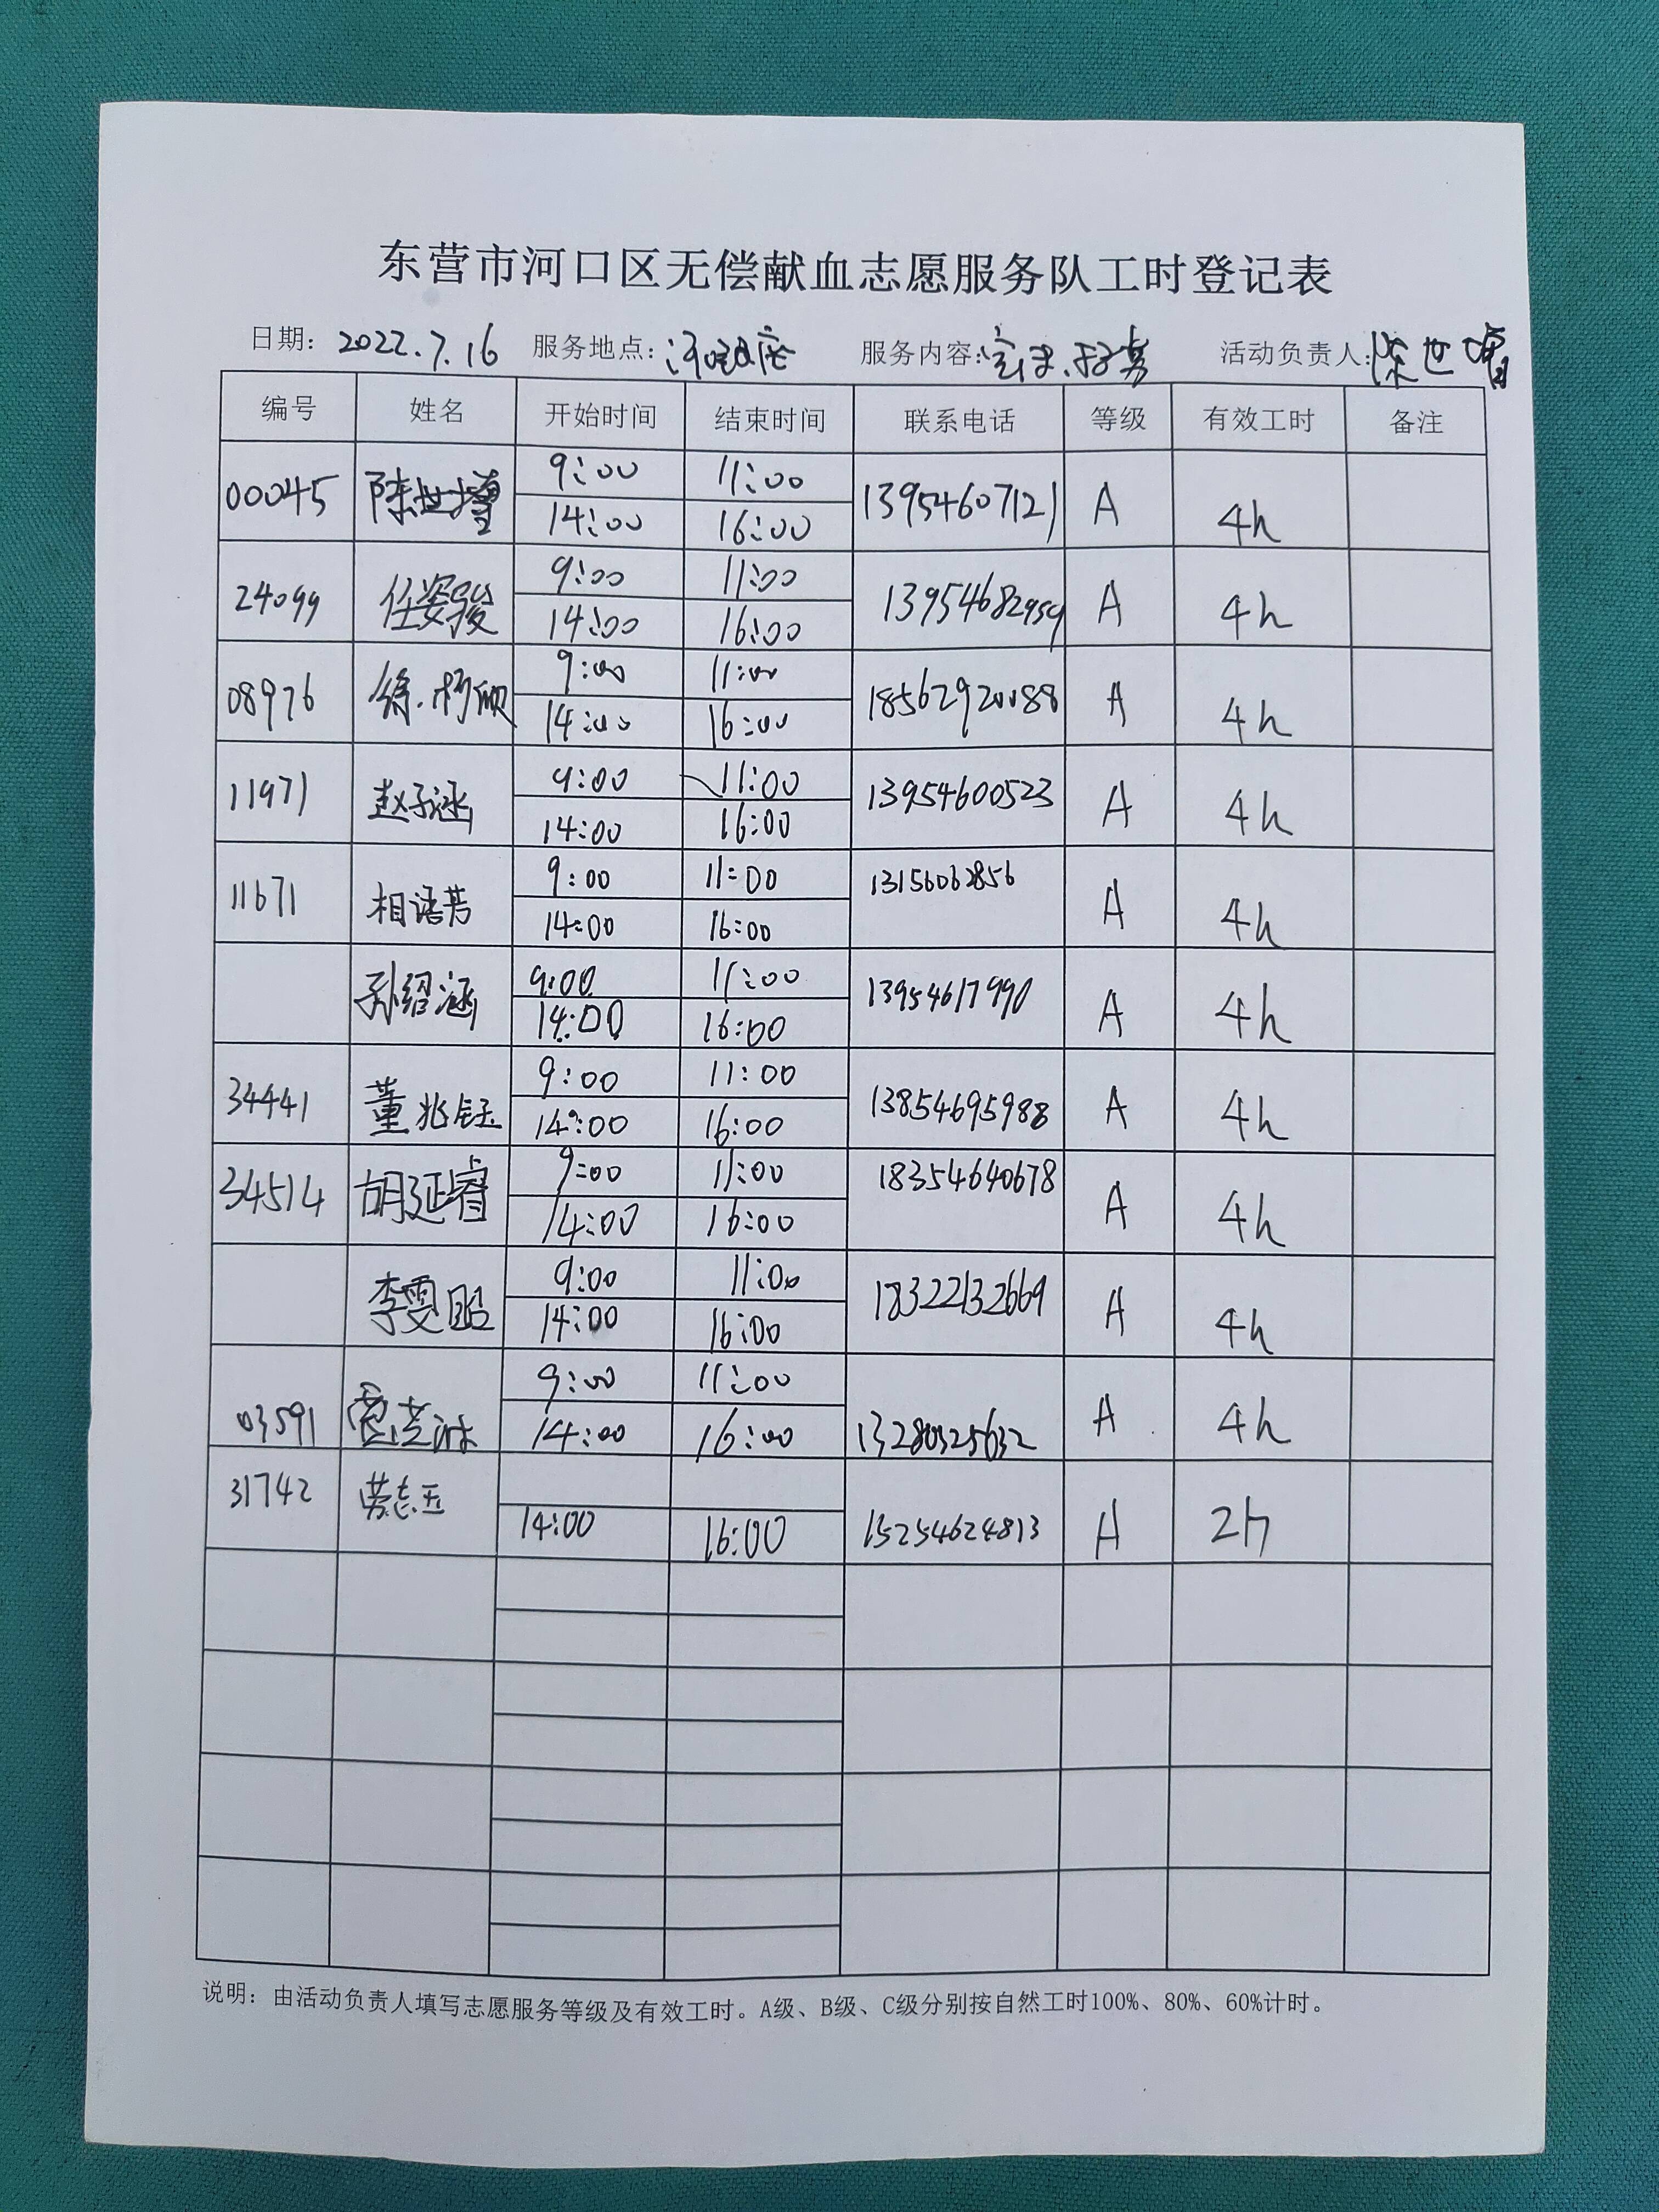 东营市河口区无偿献血志愿服务队工时登记表
日期: 2022.7.16 服务地点: 服务内容: 宣传.招募 活动负责人: 陈世增
编号 姓名 开始时间 结束时间 联系电话 等级 有效工时 备注
00045 陈世增 9:00 11:00 13954607121 A 4h
14:00 16:00
24099 任姿骏 9:00 11:00 13954682959 A 4h
14:00 16:00
08976 9:00 11:00 18562920088 A 4h
14:00 16:00
11971 赵子涵 9:00 11:00 13954600523 A 4h
14:00 16:00
11671 相语芳 9:00 11:00 13156062856 A 4h
14:00 16:00
孙绍涵 9:00 11:00 13954617990 A 4h
14:00 16:00
34441 董兆钰 9:00 11:00 13854695988 A 4h
14:00 16:00
34514 胡延睿 9:00 11:00 18354640678 A 4h
14:00 16:00
李雯昭 9:00 11:00 18322132669 A 4h
14:00 16:00
03591 9:00 11:00 13280325632 A 4h
14:00 16:00
31742 劳志玉 14:00 16:00 15254624813 A 2h
说明: 由活动负责人填写志愿服务等级及有效工时。A级、B级、C级分别按自然工时100%、80%、60%计时。